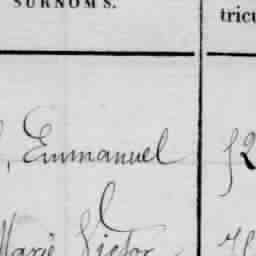 SURNOMS. tricu
, Emmanuel
Marie Victor